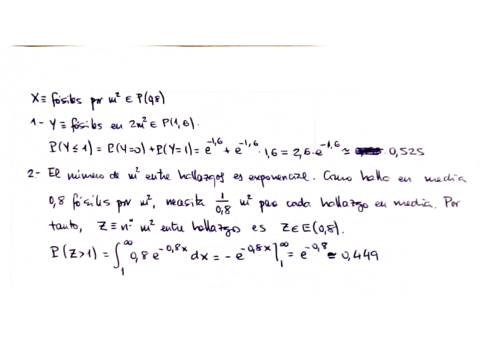 X ≡ fósiles por m² ∈ P(0,8)
1- Y ≡ fósiles en 2m² ∈ P(1,6).
P(Y≤1) = P(Y=0)+P(Y=1) = e^{-1,6} + e^{-1,6}·1,6 = 2,6·e^{-1,6} ≃ 0,525
2- El número de m² entre hallazgos es exponencial. Como halla en media
0,8 fósiles por m², necesita 1/0,8 m² para cada hallazgo en media. Por
tanto, Z ≡ nº m² entre hallazgo es Z ∈ E(0,8).
P(Z>1) = ∫_1^∞ 0,8 e^{-0,8x} dx = -e^{-0,8x}]_1^∞ = e^{-0,8} ≃ 0,449